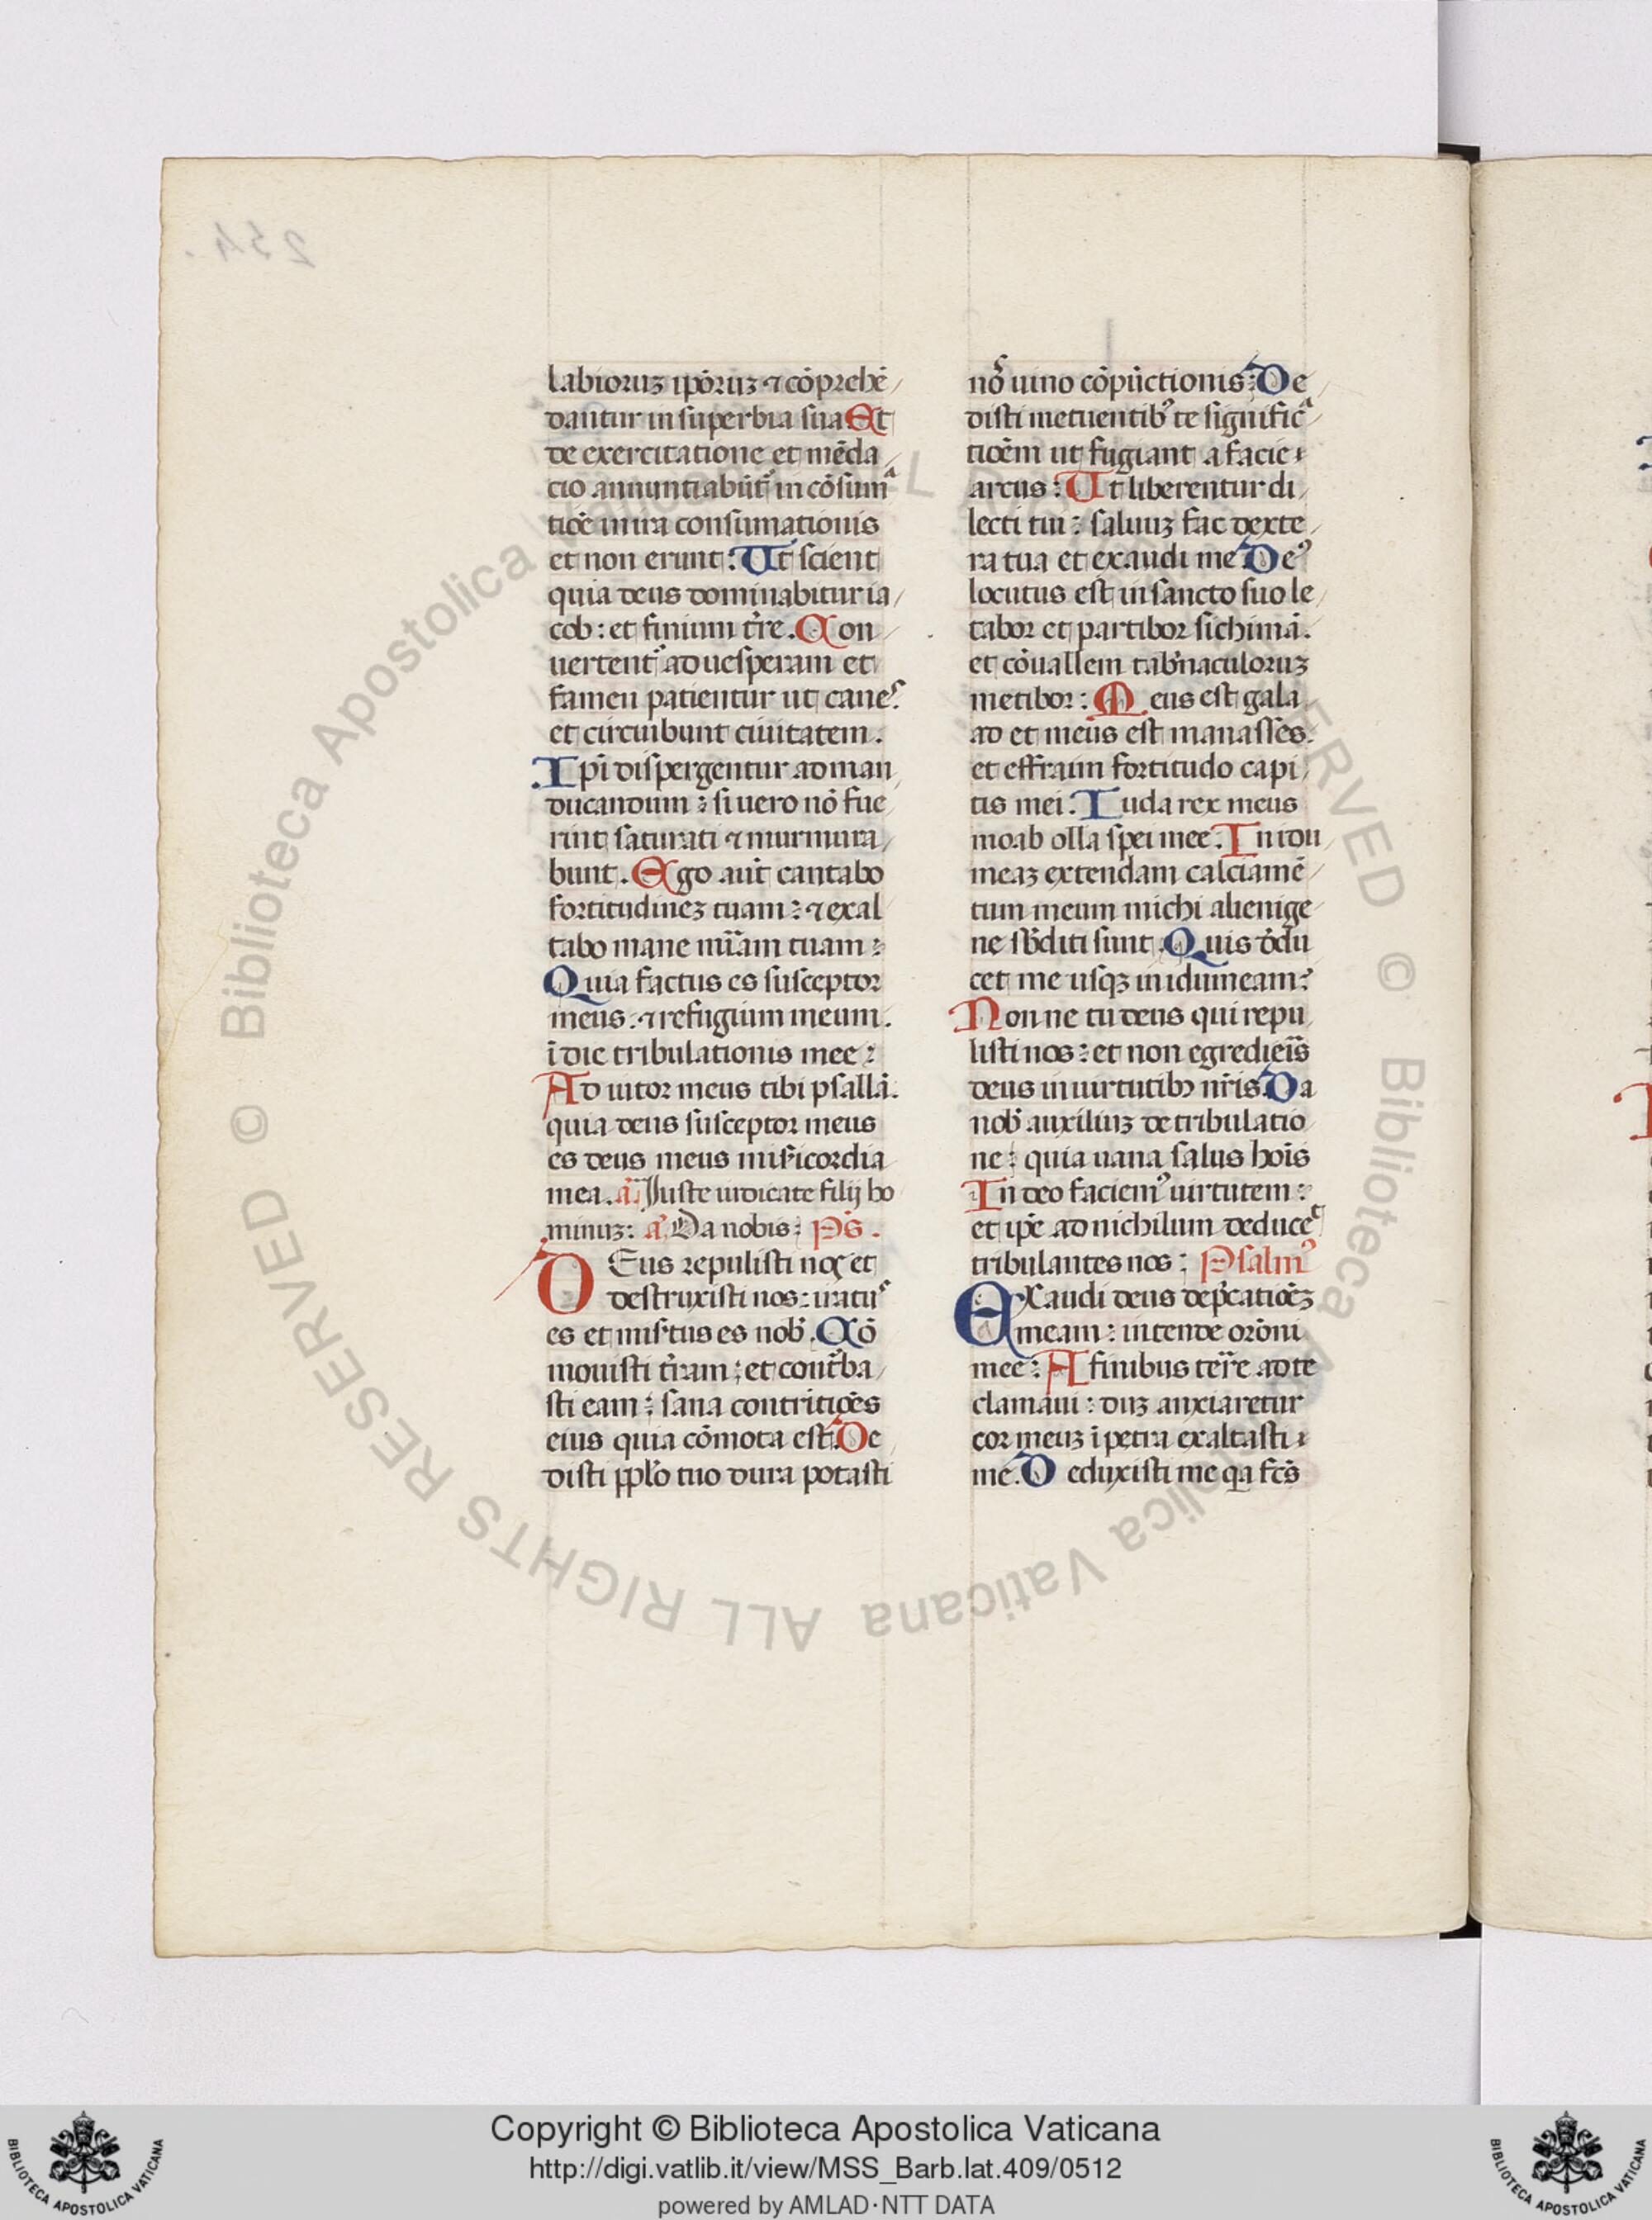 254.
labioruꝫ ipōruꝫ ⁊ cōprehē
dantur in superbia sua Et
de exercitatione et mēda
cio annuntiabūt᷑ in cōsumᵃ
tiōe in ira consumationis
et non erunt: Ut scient
quia deus dominabitur ia
cob: et finium tr̄re. Con
uertent᷑ ad uesperam et
famen patientur ut canes:
et circuibunt ciuitatem.
Ipī dispergentur ad man
ducandum: si uero nō fue
rint saturati ⁊ murmura
bunt. Ego aūt cantabo
fortitudineꝫ tuam: ⁊ exal
tabo mane mīam tuam:
Quia factus es susceptor
meus: ⁊ refugium meum.
ī die tribulationis mee:
Adiutor meus tibi psallā.
quia deus susceptor meus
es deus meus mis̄icordia
mea. a᷑ Juste iudicate filij ho
minuꝫ: a᷑ Da nobis: Ps̄.
DEus repulisti nos et
destruxisti nos: iratus
es et mis̄tus es nob̄. Cō
mouisti tr̄ram: et cont᷑ba
sti eam: sana contritiōes
eius quia cōmota est: De
disti pp̄lo tuo dura potasti
nos̄ uino cōpūctionis: De
disti metuentibꝰ te significᵃ
tiōem ut fugiant a facie
arcus: Ut liberentur di
lecti tui: saluuꝫ fac dexte
ra tua et exaudi me Deꝰ
locutus est in sancto suo le
tabor et partibor sichimā.
et cōuallem tab̄naculoruꝫ
metibor: Meus est gala
ad et meus est manasses.
et effraim fortitudo capi
tis mei: Iuda rex meus
moab olla spei mee: In idu
meaꝫ extendam calciamē
tum meum michi alienige
ne sb̄diti sunt. Quis dēdu
cet me usqꝫ in idumeam:
Non ne tu deus qui repu
listi nos: et non egredieīs
deus in uirtutibꝫ nr̄is. Da
nob̄ auxiliuꝫ de tribulatio
ne: quia uana salus hoīs
In deo faciemꝰ uirtutem:
et ipē ad nichilum deducet
tribulantes nos: Psalmꝰ
EXaudi deus dep̄catiōeꝫ
meam: intende orōni
mee: A finibus terre ad te
clamaui: duꝫ anxiaretur
cor meuꝫ ī petra exaltasti
me. Deduxisti me qa fcs̄
Copyright © Biblioteca Apostolica Vaticana
http://digi.vatlib.it/view/MSS_Barb.lat.409/0512
powered by AMLAD·NTT DATA
© Biblioteca Apostolica Vaticana ALL RIGHTS RESERVED © Biblioteca Apostolica Vaticana ALL RIGHTS RESERVED
BIBLIOTECA APOSTOLICA VATICANA
BIBLIOTECA APOSTOLICA VATICANA